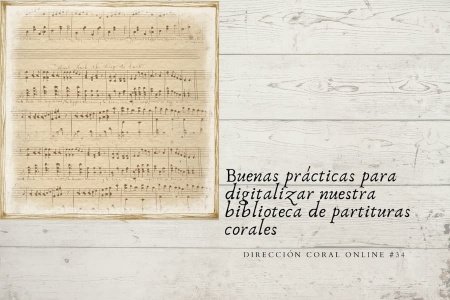 Buenas prácticas para
digitalizar nuestra
biblioteca de partituras
corales
DIRECCIÓN CORAL ONLINE #34